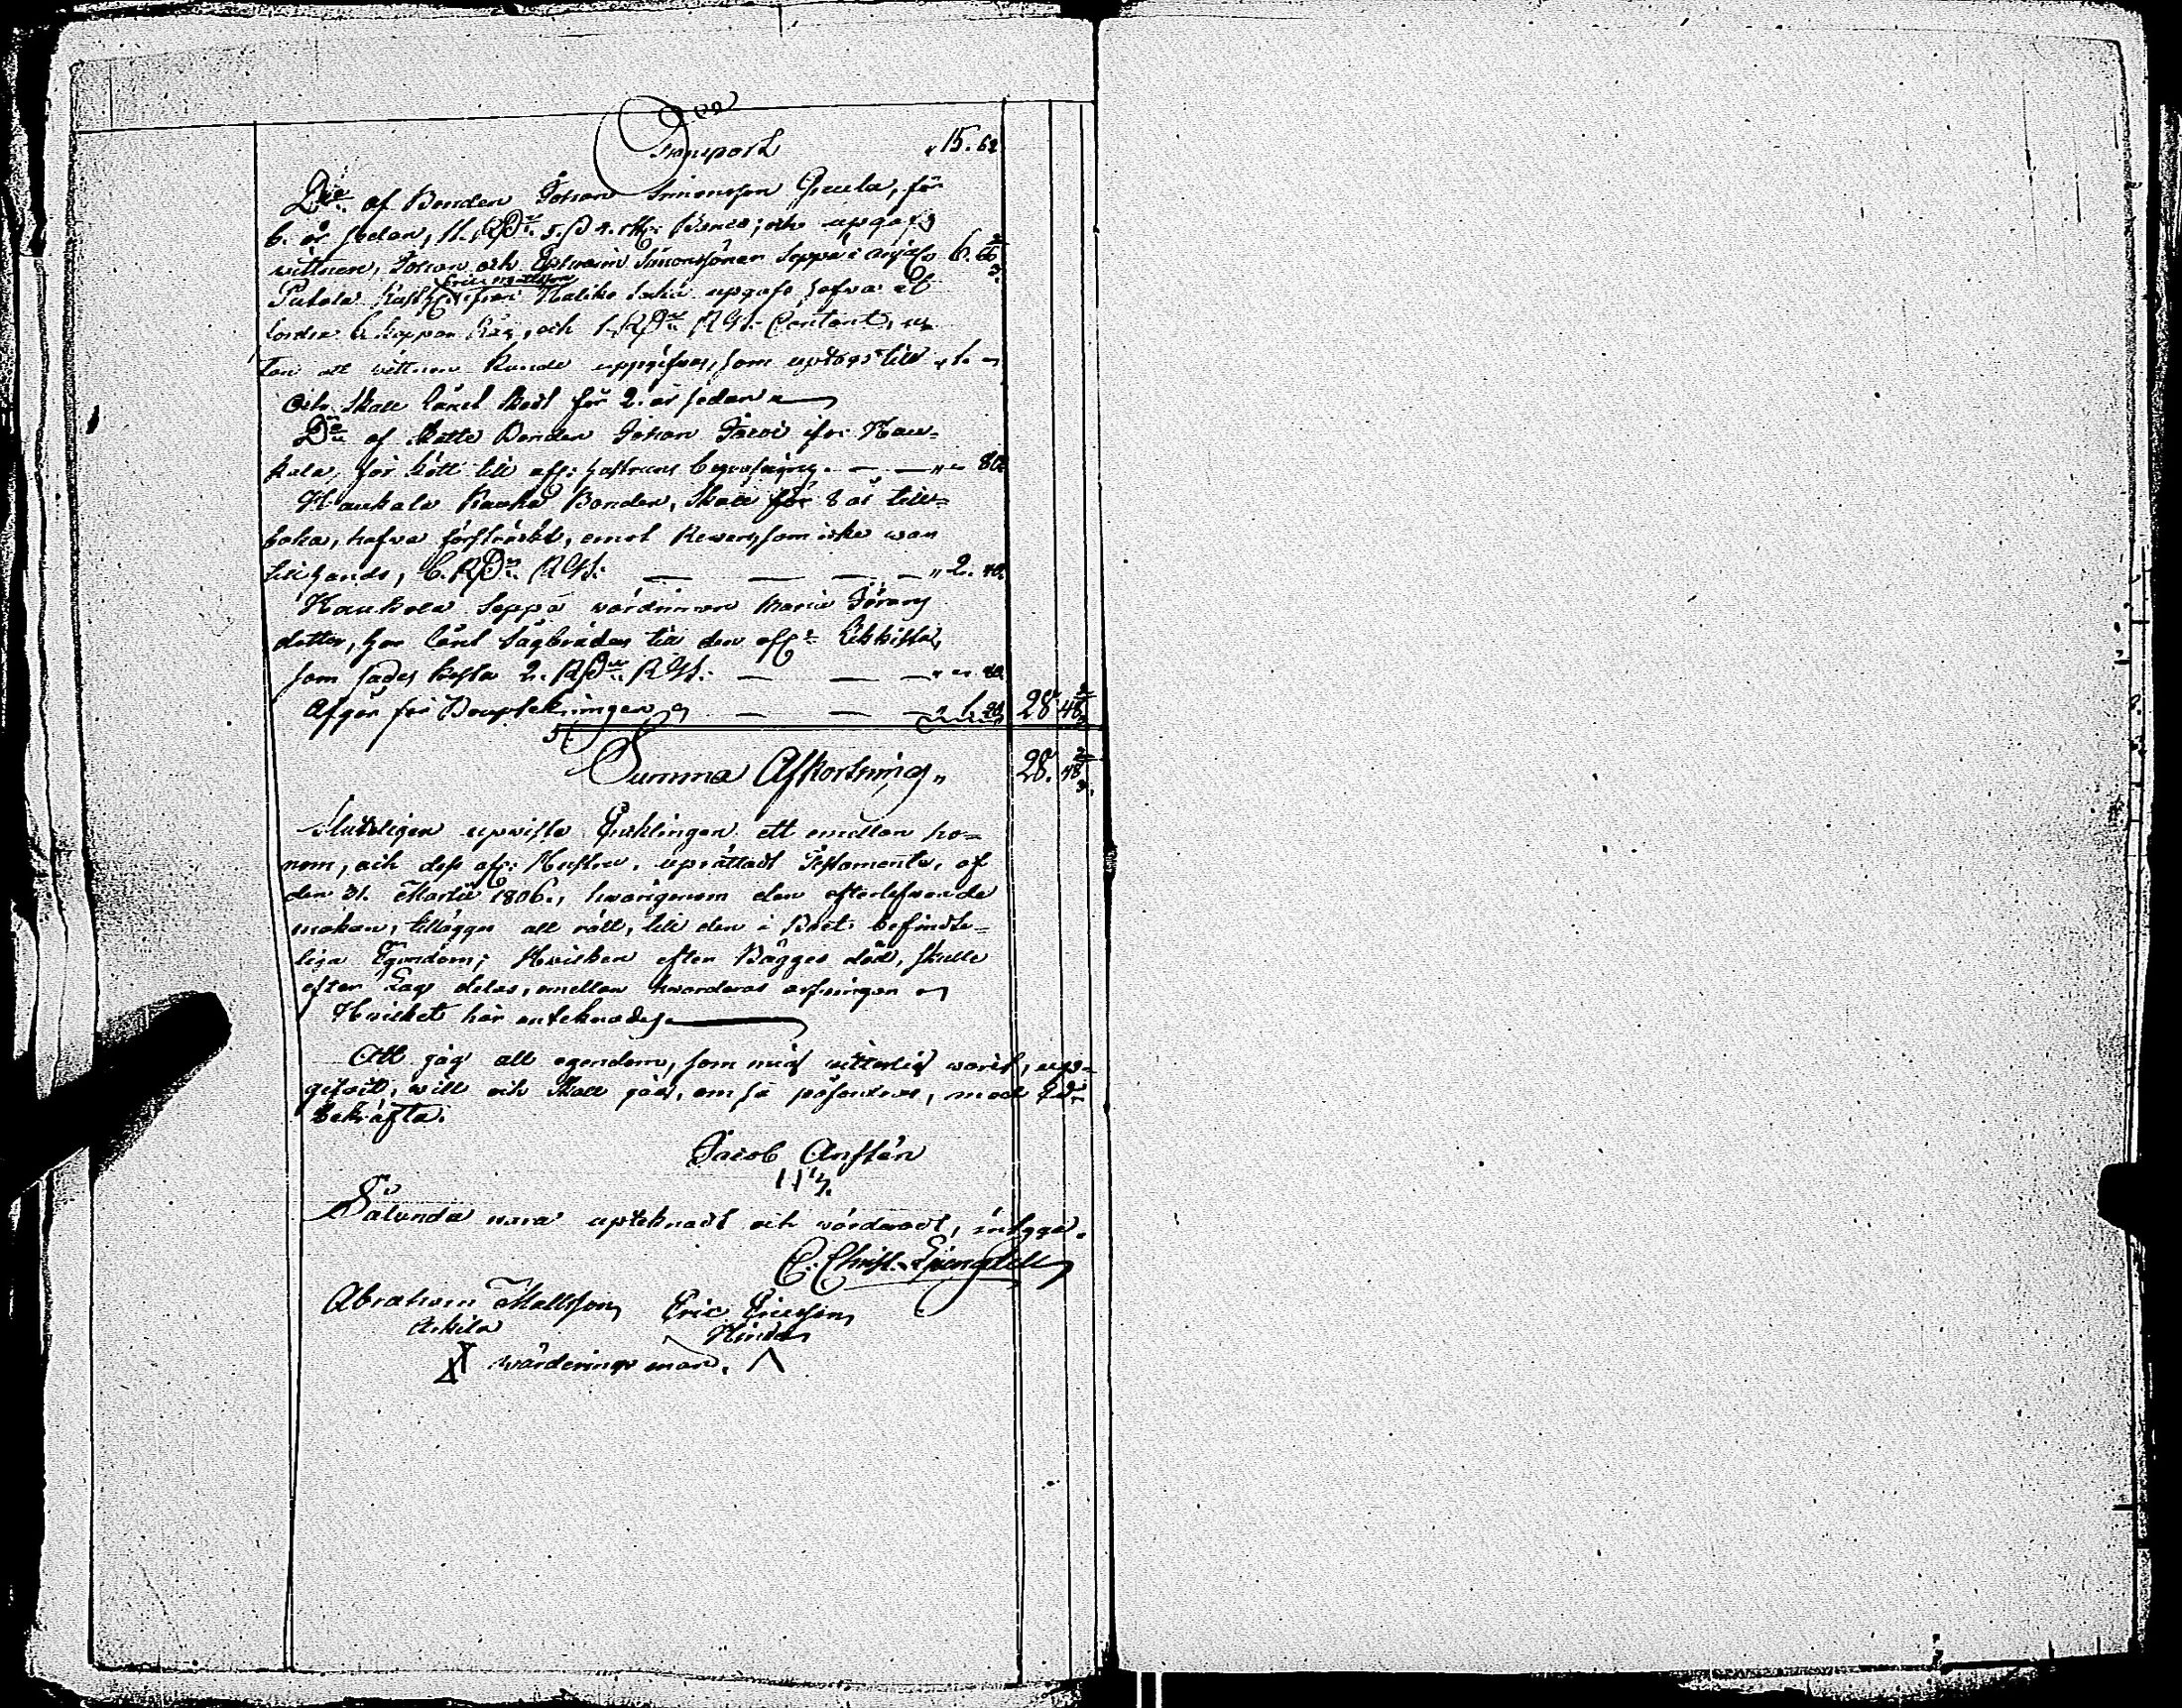 Transport „ 15. 62
D:o af Bonden Johan Simonsson Greula, för
6. år sedan, 11. RD:r 5. ß 4. rst: Banco; och upgafs
vittnen, Johan och Ephraim Simonssöner Seppä i 6. 66 2/3
Eric Mattsson
Putola från Haliko Sokn upgafs hafva at
fordra 6. kappar Råg, och 1. RD:r RGS. Contant, u-
tan att vittnen kunde uppgifvas, som uptogs till „ 1. „
Och skall lånet skedt för 2. år sedan
D:o af Skatte Bonden Johan Jacobs ifr: Hau-
kala, för kött till afl: hustruns begrafning. — — „ „ 80
Haukala Bonden, skall för 8 år till-
baka, hafva försträckt, emot Revers som icke var
till hands, 6. RD:r RGS: — — — — „ 2. 40.
Haukola Seppä värdinnan Maria Görans
dotter, har lånt Sågbräder till den afl:e Likkista,
som sades kosta 2. RD:r RGS. — — — „ „ 80.
Afgår för Bouptekningen — — — „ 1. 20. 28. 48 2/3
Summa Afkortning „ 28. 48 2/3.
Sluteligen upviste Enklingen ett emellan ho-
nom, och dess afl: Hustru, uprättadt Testamente, af
den 31. Martii 1806., hvarigenom den efterlefvande
makan, tillägges all rätt, till den i Boet befindte-
liga Egendom; Hvilken efter Bägges död, skulle
efter Lag delas, emellan hvarderas arfvingar
Hvilket här anteknades
Att jag all egendom, som mig vitterlig varit, upp-
gifvit, vill och skall jag, om så påfordras, med Ed
bekräfta.
Jacob Anstén
Sålunda vara upteknadt och värderadt, intyga.
C. Christ. Ljungdell
Abraham Mattsson Eric Ericsson
Arkila
värderings män.